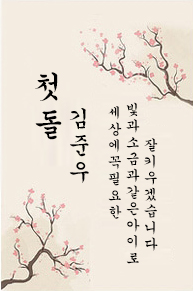 첫돌
김준우
세상에 꼭 필요한
빛과 소금과 같은 아이로
잘 키우겠습니다